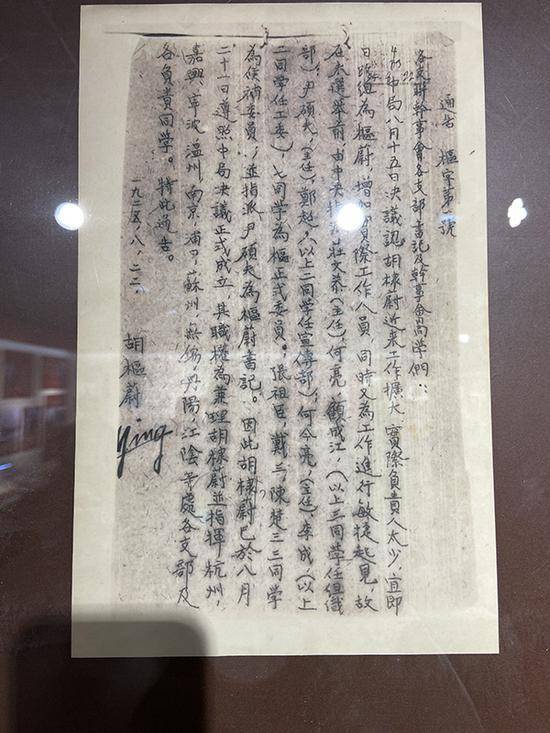 通告 樞字第一號
各支聯幹事會各支部書記及幹事會同學們：
中局八月十五日決議認胡棣蔚近来工作擴大實際負責人太少，宜即
日改組為樞蔚，增加實際工作人員，同時又為工作進行敏捷起見，故
在未選举前，由中央指定莊文恭（主任），何亮，顧成江，（以上三同學任組織
部）；尹碩夫，（主任），鄭超，（以上二同学任宣傳部），何今亮（主任）李成（以上
二同学任工委），七同学為樞正式委員。張祖臣，戴三，陳楚三三同学
為侯補委員，並指派尹碩夫為樞蔚書記。因此胡棣蔚已於八月
二十一日遵照中局決議正式成立，其職權為兼理胡棣蔚並指揮杭州，
嘉興，寧波，温州，南京，浦口，蘇州，無錫，丹陽，江陰等處各支部及
各負責同学。特此通告。
一九二五、八、二二、 胡樞蔚
ying